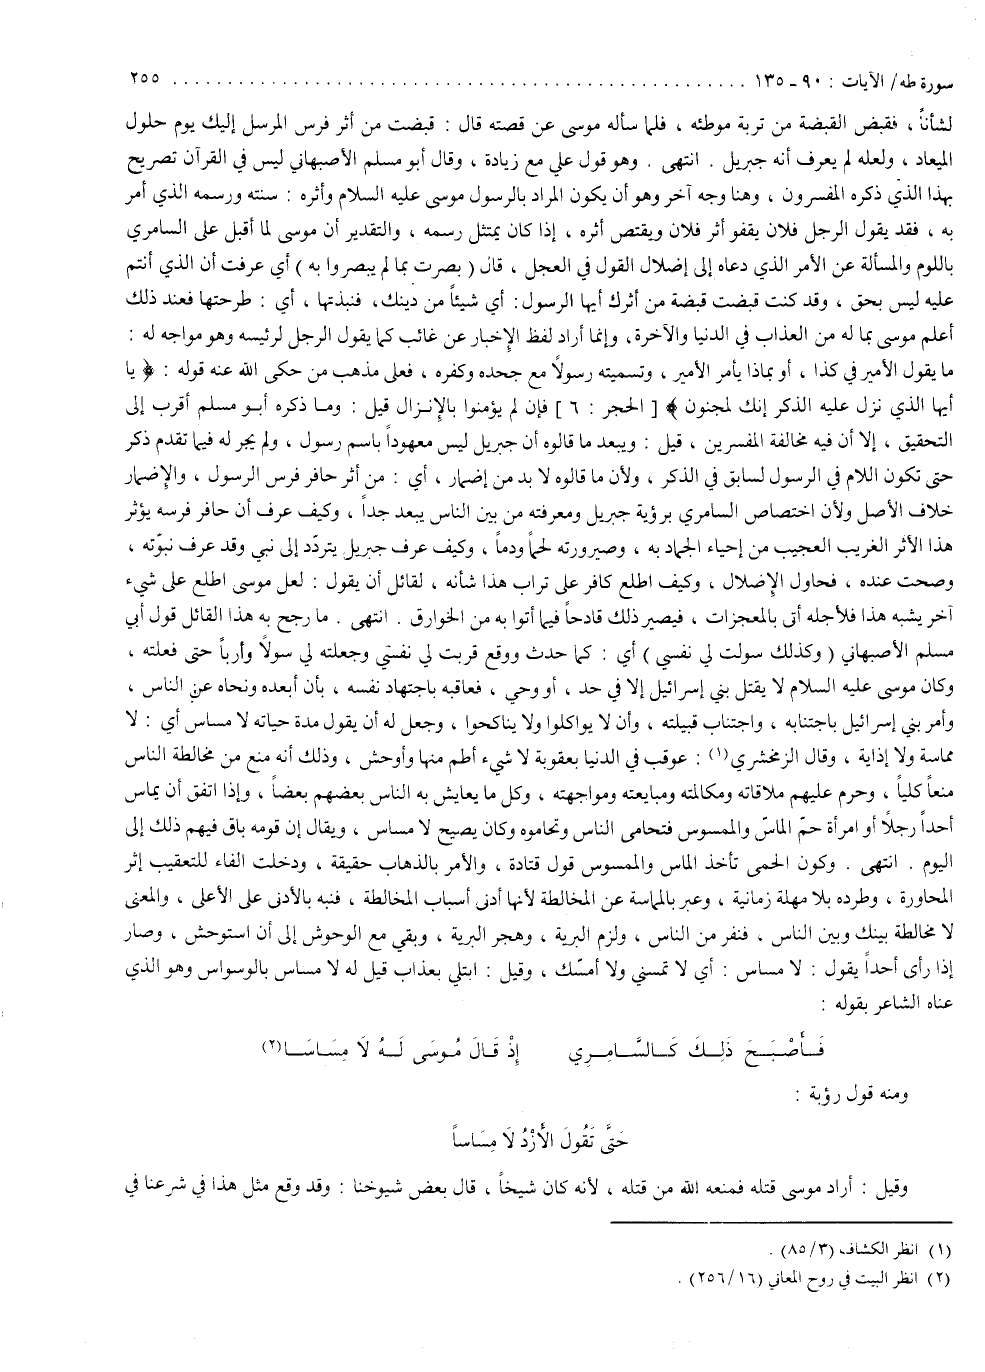 سورة طه/ الآيات : ٩٠ - ١٣٥ ........................................................ ٢٥٥
لشأناً ، فقبض القبضة من تربة موطئه ، فلما سأله موسى عن قصته قال : قبضت من أثر فرس المرسل إليك يوم حلول
الميعاد ، ولعله لم يعرف أنه جبريل . انتهى . وهو قول علي مع زيادة ، وقال أبو مسلم الأصبهاني ليس في القرآن تصريح
بهذا الذي ذكره المفسرون ، وهنا وجه آخر وهو أن يكون المراد بالرسول موسى عليه السلام وأثره : سنته ورسمه الذي أمر
به ، فقد يقول الرجل فلان يقفو أثر فلان ويقتص أثره ، إذا كان يمتثل رسمه ، والتقدير أن موسى لما أقبل على السامري
باللوم والمسألة عن الأمر الذي دعاه إلى إضلال القول في العجل ، قال ( بصرت بما لم يبصروا به ) أي عرفت أن الذي أنتم
عليه ليس بحق ، وقد كنت قبضت قبضة من أثرك أيها الرسول: أي شيئاً من دينك، فنبذتها ، أي : طرحتها فعند ذلك
أعلم موسى بما له من العذاب في الدنيا والآخرة، وإنما أراد لفظ الإخبار عن غائب كما يقول الرجل لرئيسه وهو مواجه له :
ما يقول الأمير في كذا ، أو بماذا يأمر الأمير ، وتسميته رسولاً مع جحده وكفره ، فعلى مذهب من حكى الله عنه قوله : ﴿ يا
أيها الذي نزل عليه الذكر إنك لمجنون ﴾ [ الحجر : ٦ ] فإن لم يؤمنوا بالإنزال قيل : وما ذكره أبو مسلم أقرب إلى
التحقيق ، إلا أن فيه مخالفة المفسرين ، قيل : ويبعد ما قالوه أن جبريل ليس معهوداً باسم رسول ، ولم يجر له فيما تقدم ذكر
حتى تكون اللام في الرسول لسابق في الذكر ، ولأن ما قالوه لا بد من إضمار ، أي : من أثر حافر فرس الرسول ، والإضمار
خلاف الأصل ولأن اختصاص السامري برؤية جبريل ومعرفته من بين الناس يبعد جداً ، وكيف عرف أن حافر فرسه يؤثر
هذا الأثر الغريب العجيب من إحياء الجماد به ، وصيرورته لحماً ودماً ، وكيف عرف جبريل يتردّد إلى نبي وقد عرف نبوّته ،
وصحت عنده ، فحاول الإضلال ، وكيف اطلع كافر على تراب هذا شأنه ، لقائل أن يقول : لعل موسى اطلع على شيء
آخر يشبه هذا فلأجله أتى بالمعجزات ، فيصير ذلك قادحاً فيما أتوا به من الخوارق . انتهى . ما رجح به هذا القائل قول أبي
مسلم الأصبهاني ( وكذلك سولت لي نفسي ) أي : كما حدث ووقع قربت لي نفسي وجعلته لي سولاً وأرباً حتى فعلته ،
وكان موسى عليه السلام لا يقتل بني إسرائيل إلا في حد ، أو وحي ، فعاقبه باجتهاد نفسه ، بأن أبعده ونحاه عن الناس ،
وأمر بني إسرائيل باجتنابه ، واجتناب قبيلته ، وأن لا يواكلوا ولا يناكحوا ، وجعل له أن يقول مدة حياته لا مساس أي : لا
مماسة ولا إذاية ، وقال الزمخشري(١) : عوقب في الدنيا بعقوبة لا شيء أطم منها وأوحش ، وذلك أنه منع من مخالطة الناس
منعاً كلياً ، وحرم عليهم ملاقاته ومكالمته ومبايعته ومواجهته ، وكل ما يعايش به الناس بعضهم بعضاً ، وإذا اتفق أن يماس
أحداً رجلاً أو امرأة حمّ الماسّ والممسوس فتحامى الناس وتحاموه وكان يصيح لا مساس ، ويقال إن قومه باق فيهم ذلك إلى
اليوم . انتهى . وكون الحمى تأخذ الماس والممسوس قول قتادة ، والأمر بالذهاب حقيقة ، ودخلت الفاء للتعقيب إثر
المحاورة ، وطرده بلا مهلة زمانية ، وعبر بالمماسة عن المخالطة لأنها أدنى أسباب المخالطة ، فنبه بالأدنى على الأعلى ، والمعنى
لا مخالطة بينك وبين الناس ، فنفر من الناس ، ولزم البرية ، وهجر البرية ، وبقي مع الوحوش إلى أن استوحش ، وصار
إذا رأى أحداً يقول : لا مساس : أي لا تمسني ولا أمسّك ، وقيل : ابتلي بعذاب قيل له لا مساس بالوسواس وهو الذي
عناه الشاعر بقوله :
فَأَصْبَحَ ذَلِكَ كَالسَّامِرِي إِذْ قَالَ مُوسَى لَهُ لَا مِسَاسَا(٢)
ومنه قول رؤبة :
حَتَّى تَقُولَ الأَزْدُ لَا مِسَاساً
وقيل : أراد موسى قتله فمنعه الله من قتله ، لأنه كان شيخاً ، قال بعض شيوخنا : وقد وقع مثل هذا في شرعنا في
(١) انظر الكشاف (٨٥/٣) .
(٢) انظر البيت في روح المعاني (٢٥٦/١٦) .